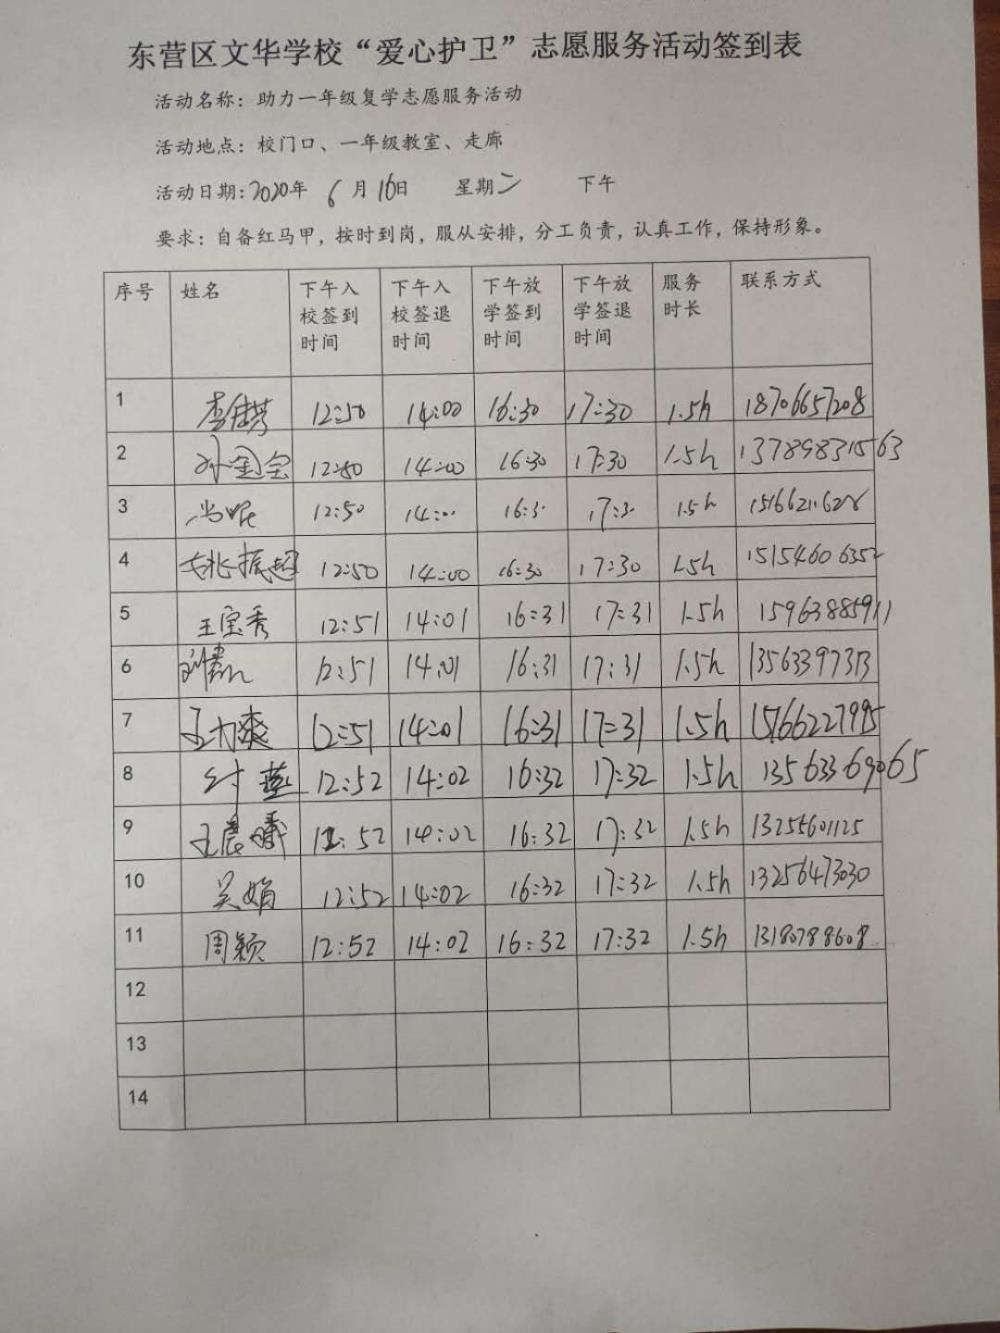 东营区文华学校“爱心护卫”志愿服务活动签到表
活动名称：助力一年级复学志愿服务活动
活动地点：校门口、一年级教室、走廊
活动日期：2020年 6 月 16日 星期二 下午
要求：自备红马甲，按时到岗，服从安排，分工负责，认真工作，保持形象。
序号 姓名 下午入校签到时间 下午入校签退时间 下午放学签到时间 下午放学签退时间 服务时长 联系方式
1 12:50 14:00 16:30 17:30 1.5h 18706657208
2 孙金宝 12:50 14:00 16:30 17:30 1.5h
3 12:50 14:.. 16:3. 17:3. 1.5h
4 姚振超 12:50 14:00 16:30 17:30 1.5h 15154606352
5 王宝秀 12:51 14:01 16:31 17:31 1.5h 15963885911
6 12:51 14:01 16:31 17:31 1.5h 13563397313
7 12:51 14:01 16:31 17:31 1.5h 15166227995
8 付燕 12:52 14:02 16:32 17:32 1.5h 13563369065
9 王晨曦 12:52 14:02 16:32 17:32 1.5h 13255601125
10 吴娟 12:52 14:02 16:32 17:32 1.5h 13256473030
11 周颖 12:52 14:02 16:32 17:32 1.5h 13180788608
12
13
14